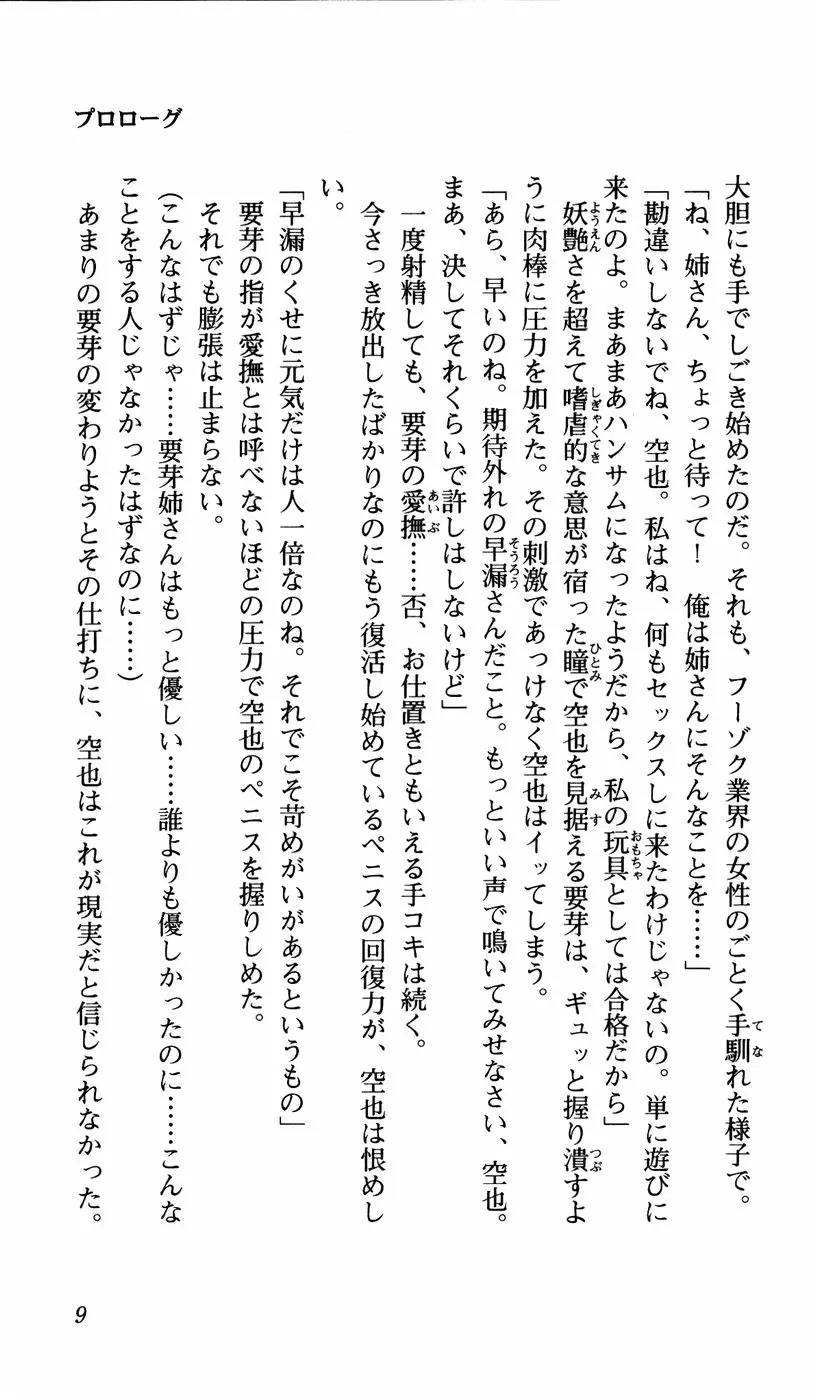 プロローグ
大胆にも手でしごき始めたのだ。それも、フーゾク業界の女性のごとく手馴れた様子で。
「ね、姉さん、ちょっと待って！　俺は姉さんにそんなことを……」
「勘違いしないでね、空也。私はね、何もセックスしに来たわけじゃないの。単に遊びに
来たのよ。まあまあハンサムになったようだから、私の玩具としては合格だから」
　妖艶さを超えて嗜虐的な意思が宿った瞳で空也を見据える要芽は、ギュッと握り潰すよ
うに肉棒に圧力を加えた。その刺激であっけなく空也はイッてしまう。
「あら、早いのね。期待外れの早漏さんだこと。もっといい声で鳴いてみせなさい、空也。
まぁ、決してそれくらいで許しはしないけど」
　一度射精しても、要芽の愛撫……否、お仕置きともいえる手コキは続く。
　今さっき放出したばかりなのにもう復活し始めているペニスの回復力が、空也は恨めし
い。
「早漏のくせに元気だけは人一倍なのね。それでこそ苛めがいがあるというもの」
　要芽の指が愛撫とは呼べないほどの圧力で空也のペニスを握りしめた。
　それでも膨張は止まらない。
（こんなはずじゃ……要芽姉さんはもっと優しい……誰よりも優しかったのに……こんな
ことをする人じゃなかったはずなのに……）
　あまりの要芽の変わりようとその仕打ちに、空也はこれが現実だと信じられなかった。
9